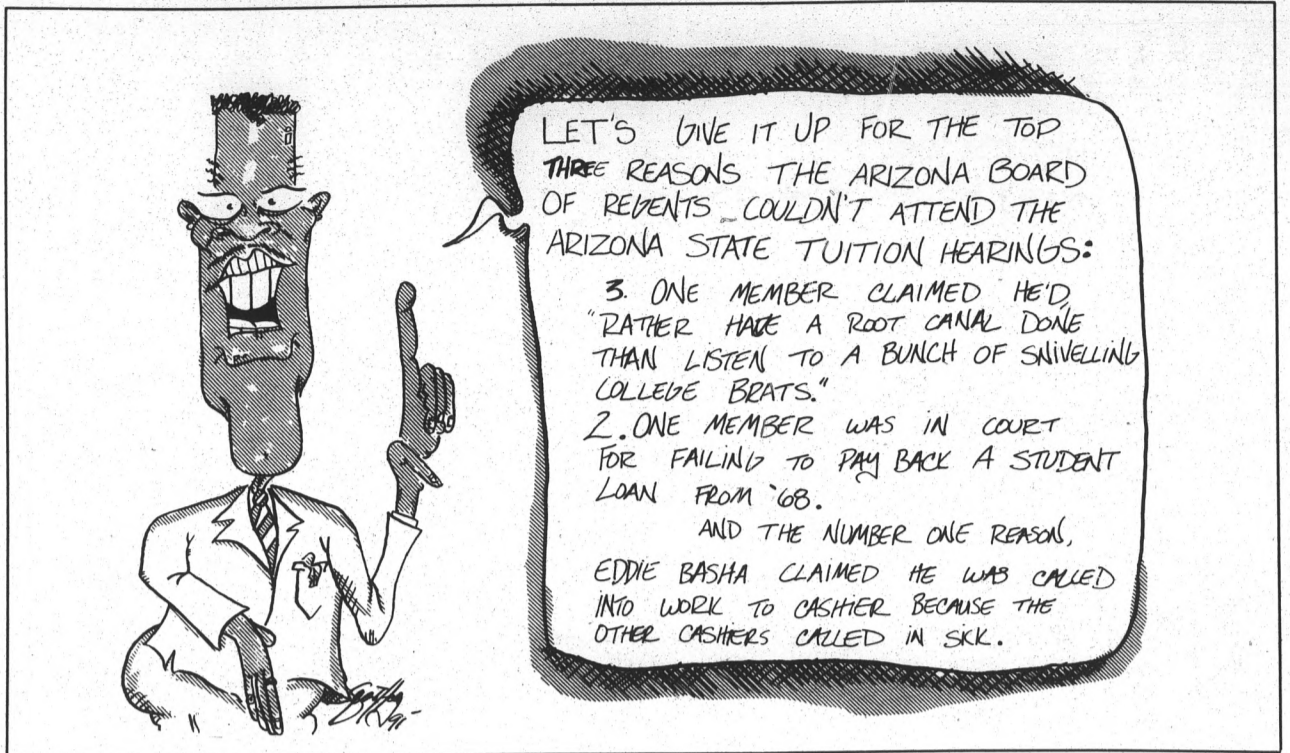 LET'S GIVE IT UP FOR THE TOP
THREE REASONS THE ARIZONA BOARD
OF REGENTS COULDN'T ATTEND THE
ARIZONA STATE TUITION HEARINGS:
3. ONE MEMBER CLAIMED HE'D,
"RATHER HAVE A ROOT CANAL DONE
THAN LISTEN TO A BUNCH OF SNIVELLING
COLLEGE BRATS."
2. ONE MEMBER WAS IN COURT
FOR FAILING TO PAY BACK A STUDENT
LOAN FROM '68.
AND THE NUMBER ONE REASON,
EDDIE BASHA CLAIMED HE WAS CALLED
INTO WORK TO CASHIER BECAUSE THE
OTHER CASHIERS CALLED IN SICK.